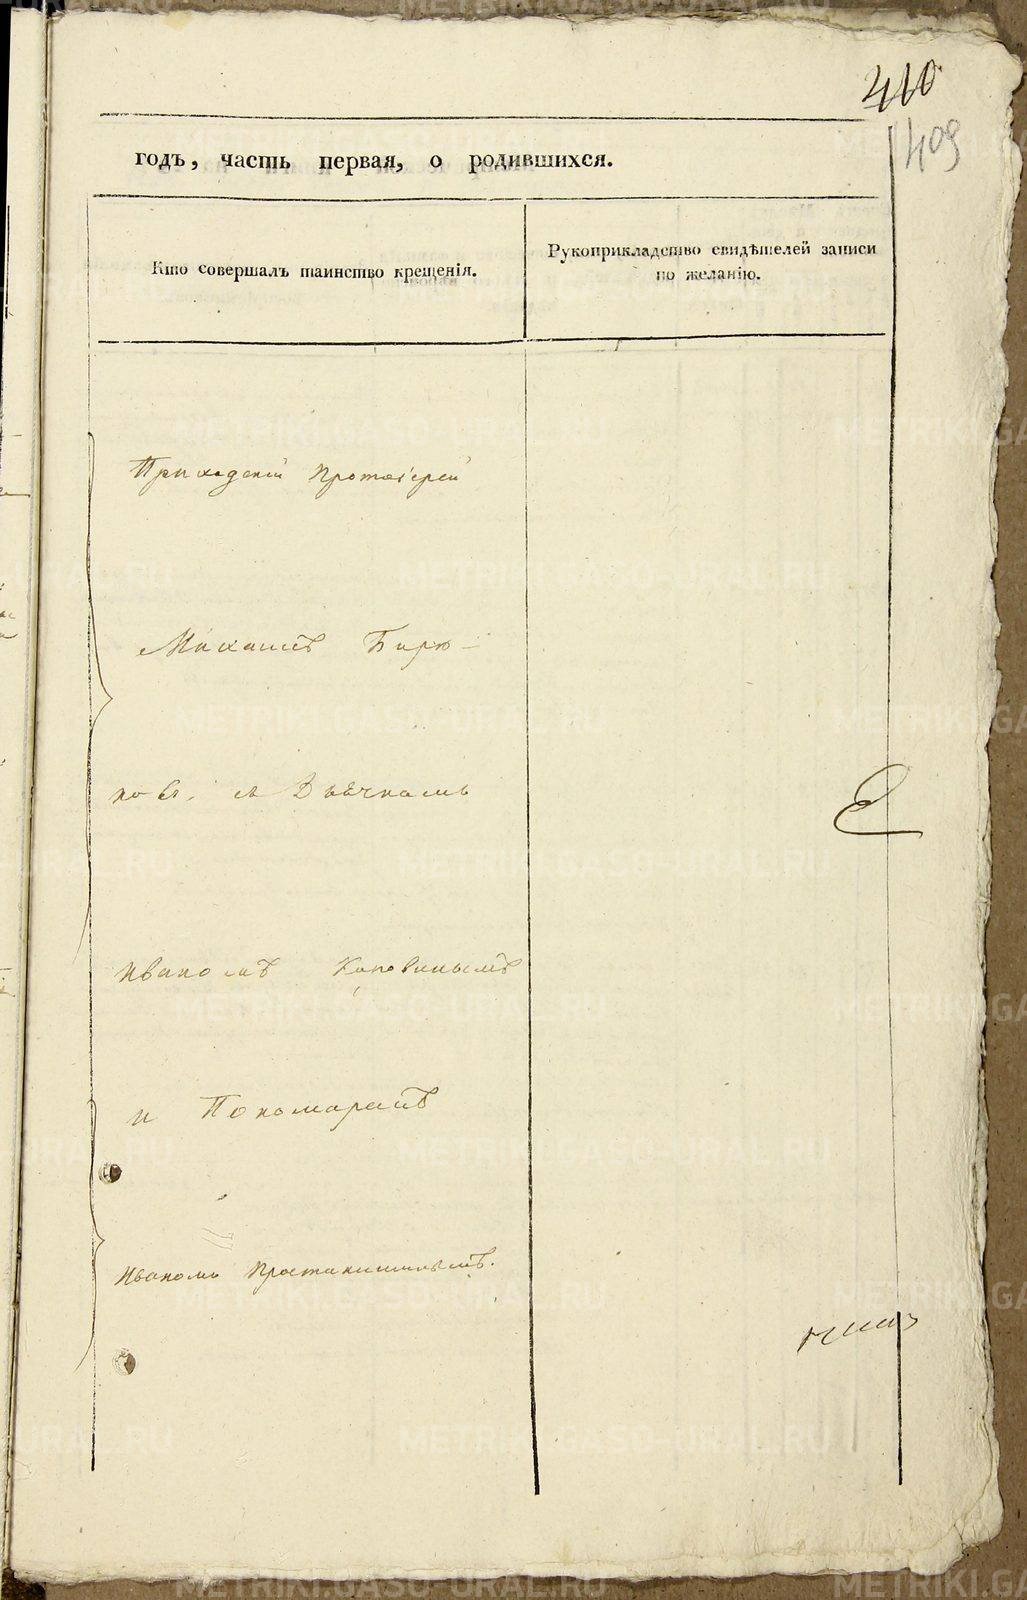 410
409
годъ, часть первая, о родившихся.
Кто совершалъ таинство крещенія.
Рукоприкладство свидѣтелей записи
по желанію.
Приходскій протоіерей
Михаилъ Бирю-
ковъ. съ Дьячкомъ
Иваномъ Коровинымъ
и Пономаремъ
Иваномъ
METRIKI.GASO-URAL.RU